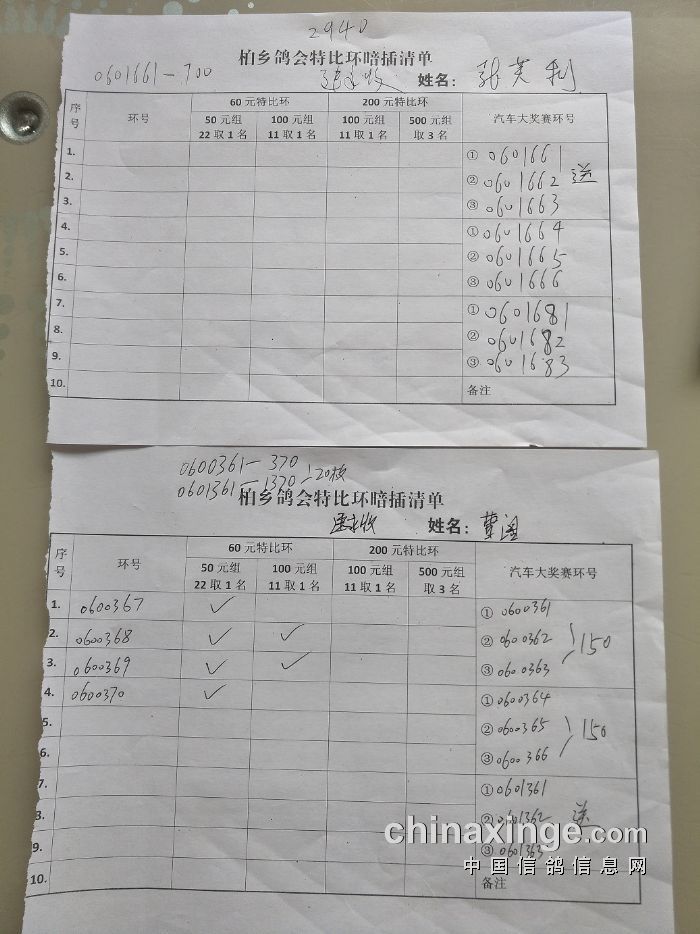 2940
柏乡鸽会特比环暗插清单
0601661-700
姓名： 张芙利
序号 环号 60元特比环 200元特比环 汽车大奖赛环号
50元组 100元组 100元组 500元组
22取1名 11取1名 11取1名 取3名
1. ① 0601661
2. ② 0601662 送
3. ③ 0601663
4. ① 0601664
5. ② 0601665
6. ③ 0601666
7. ① 0601681
8. ② 0601682
9. ③ 0601683
10. 备注
0600361-370
0601361-1370 20枚
柏乡鸽会特比环暗插清单
姓名：
序号 环号 60元特比环 200元特比环 汽车大奖赛环号
50元组 100元组 100元组 500元组
22取1名 11取1名 11取1名 取3名
1. 0600367 ✓ ① 0600361
2. 0600368 ✓ ✓ ② 0600362 150
3. 0600369 ✓ ✓ ③ 0600363
4. 0600370 ✓ ① 0600364
5. ② 0600365 150
6. ③ 0600366
7. ① 0601361
8. ② 0601362 送
9. ③ 0601363
10. 备注
chinaxinge.com
中国信鸽信息网